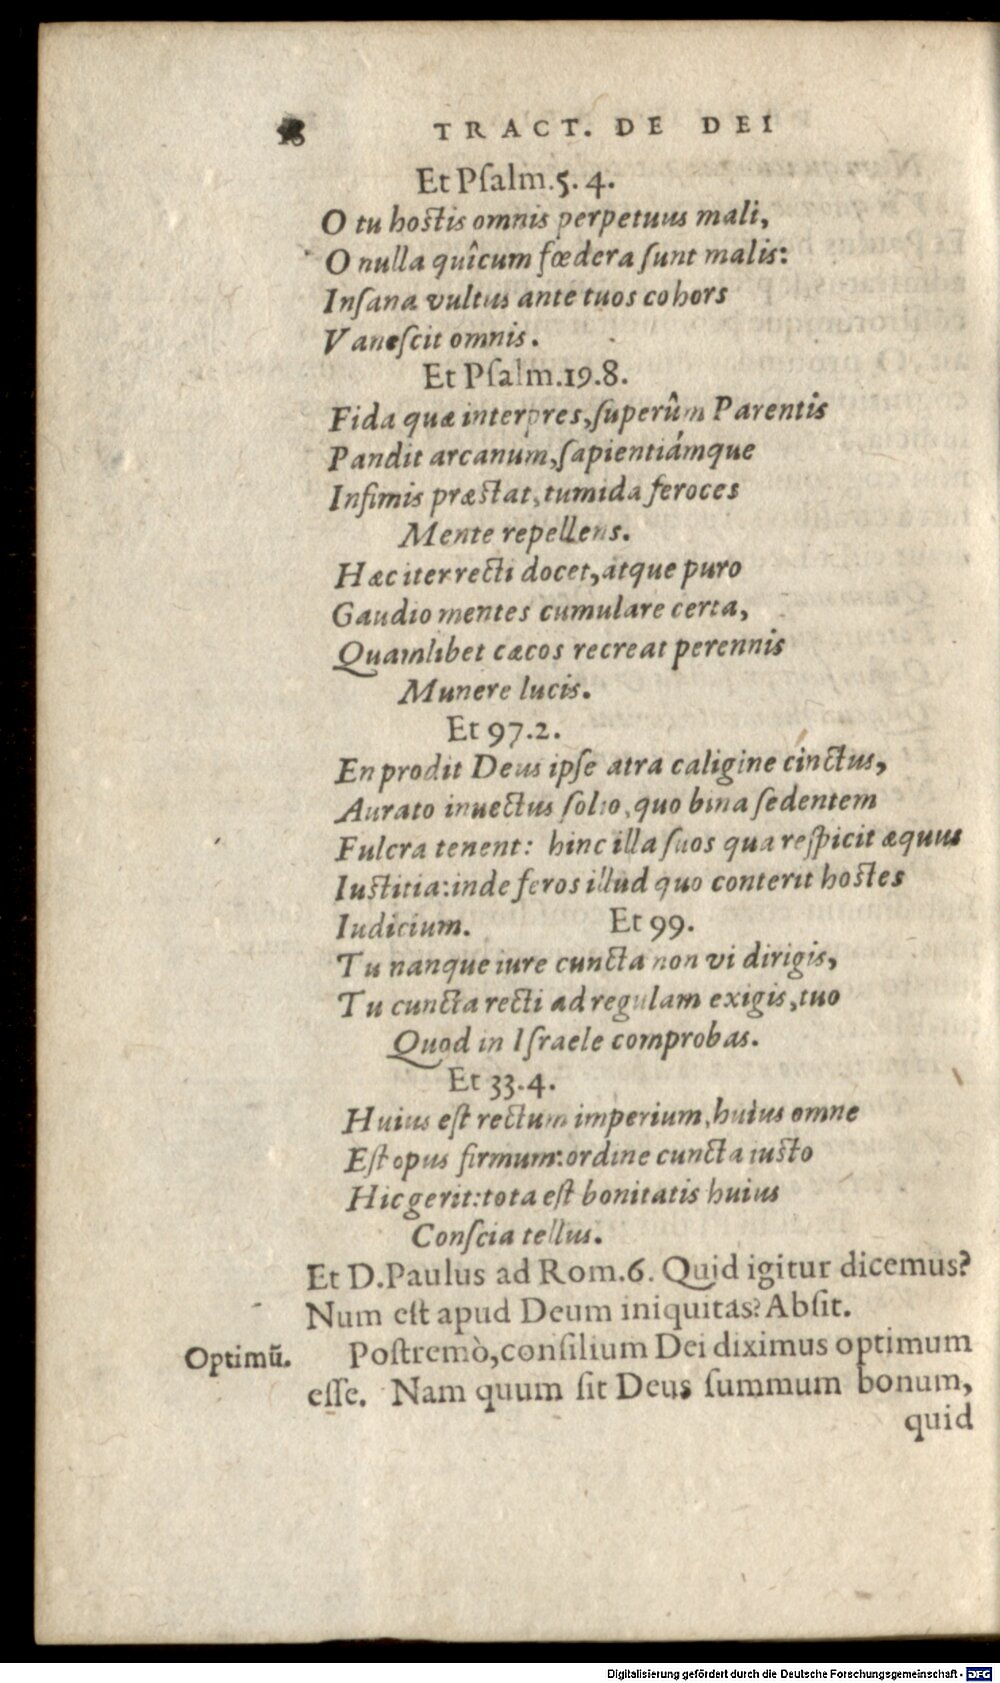 18 TRACT. DE DEI
Et Psalm.5. 4.
O tu hostis omnis perpetuus mali,
O nulla quîcum fœdera sunt malis:
Insana vultus ante tuos cohors
Vanescit omnis.
Et Psalm.19.8.
Fida quæ interpres, superûm Parentis
Pandit arcanum, sapientiámque
Infimis præstat, tumida feroces
Mente repellens.
Hæc iter recti docet, atque puro
Gaudio mentes cumulare certa,
Quamlibet cæcos recreat perennis
Munere lucis.
Et 97.2.
En prodit Deus ipse atra caligine cinctus,
Aurato inuectus solio, quo bina sedentem
Fulcra tenent: hinc illa suos qua respicit æquus
Iustitia: inde feros illud quo conterit hostes
Iudicium. Et 99.
Tu nanque iure cuncta non vi dirigis,
Tu cuncta recti ad regulam exigis, tuo
Quod in Israele comprobas.
Et 33.4.
Huius est rectum imperium, huius omne
Est opus firmum: ordine cuncta iusto
Hic gerit: tota est bonitatis huius
Conscia tellus.
Et D.Paulus ad Rom.6. Quid igitur dicemus?
Num est apud Deum iniquitas? Absit.
Optimū. Postremò, consilium Dei diximus optimum
esse. Nam quum sit Deus summum bonum,
quid
Digitalisierung gefördert durch die Deutsche Forschungsgemeinschaft - DFG